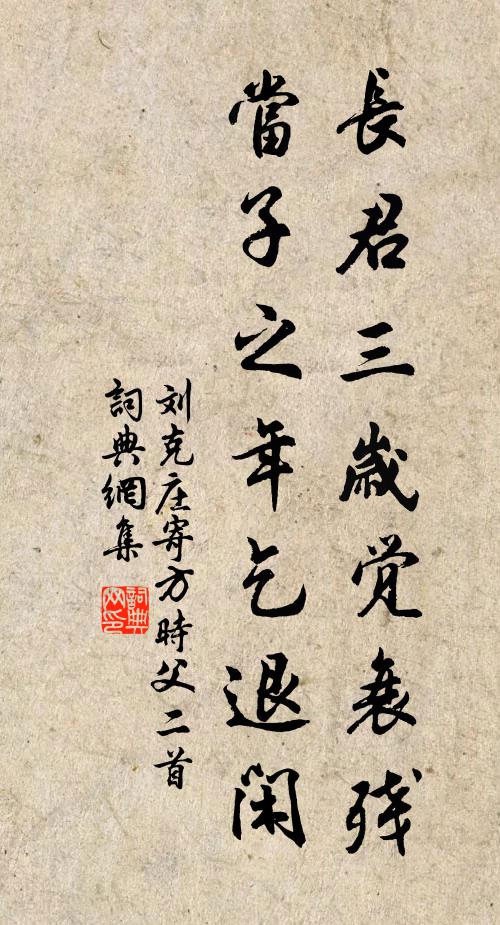 長君三歲覚衰残
當子之年乞退閑
刘克庄寄方時父二首
詞典網集
詞典网印